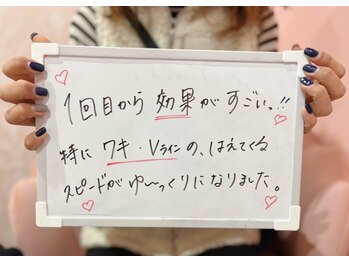 1回目から効果がすごい。!!
特にワキ・Vラインの、はえてくる
スピードがゆ〜っくりになりました。